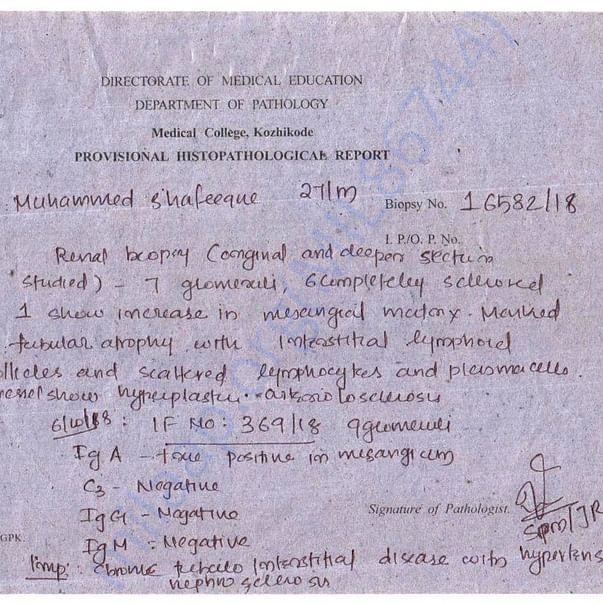 DIRECTORATE OF MEDICAL EDUCATION
DEPARTMENT OF PATHOLOGY
Medical College, Kozhikode
PROVISIONAL HISTOPATHOLOGICAL REPORT
Muhammed Shafeeque 27/m Biopsy No. 16582/18
I. P./O. P. No.
Renal biopsy (original and deeper section
studied) - 7 glomeruli, 6 completeley sclerosed
1 show increase in mesangial matrix. Marked
tubular atrophy with interstitial lymphoid
ollicles and scattered lymphocytes and plasmacells.
vessel show hyperplastic arteriolosclerosis
6/10/18 : IF No: 369/18 9 glomeruli
IgA - positive in mesangium
C3 - Negative
IgG - Negative Signature of Pathologist.
IgM - Negative spm/JR
GPK.
Imp: Chronic tubulo interstitial disease with hypertens
nephrosclerosis